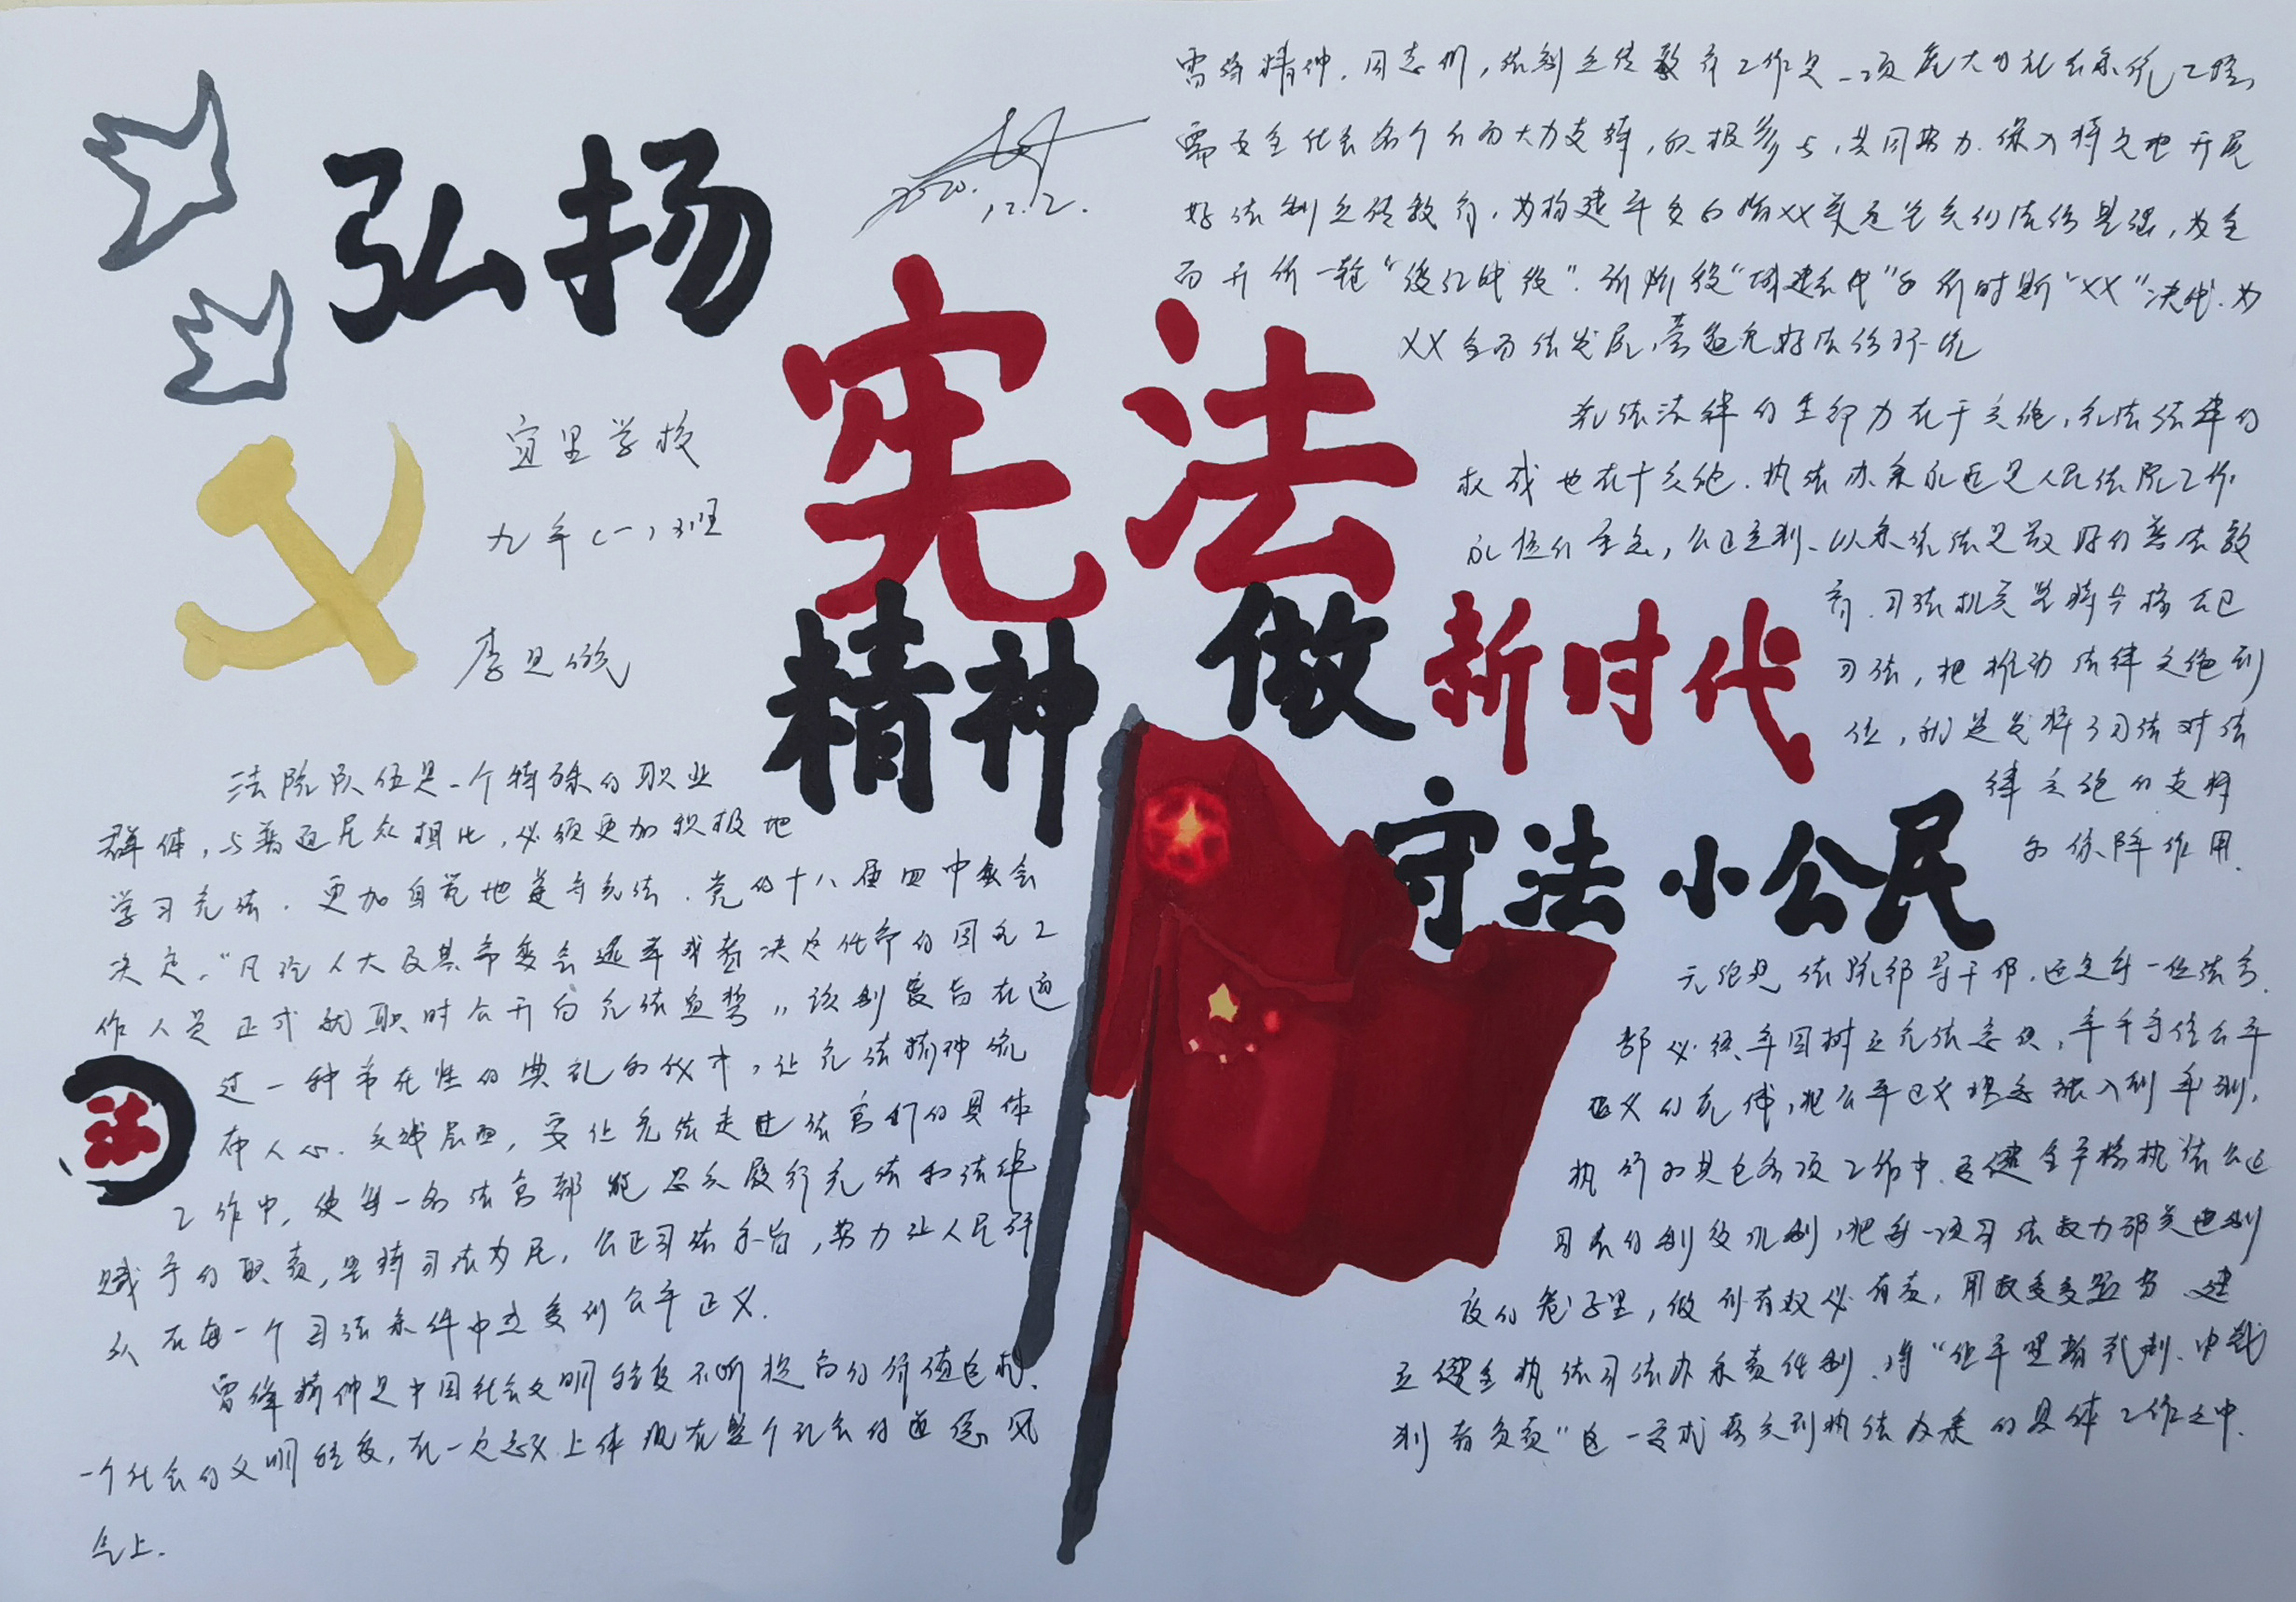 弘扬
宪法
精神 做 新时代
守法 小公民
2020.
12.2.
宜里学校
九年(一)班
法院队伍是一个特殊的职业
群体,与普通民众相比,必须更加积极地
学习宪法.更加自觉地遵守宪法.党的十八届四中全会
决定,"凡经人大及其常委会选举或者决定任命的国家工
作人员正式就职时公开向宪法宣誓"该制度旨在通
过一种常在性的典礼的仪式,让宪法精神流
在人心.实践层面,要让宪法走进法官们的具体
法
工作中,使每一名法官都能忠实履行宪法和法律
赋予的职责,坚持司法为民,公正司法宗旨,努力让人民群
众在每一个司法案件中感受到公平正义.
雷锋精神是中国社会文明程度不断提高的价值目标.
一个社会的文明程度,在一定意义上体现在整个社会的道德风
气上.
雷锋精神.同志们,法制宣传教育工作是一项庞大的社会系统工程,
需要全社会各个方面大力支持,积极参与,共同努力.深入持久地开展
好法制宣传教育,为构建平安
XX全面依法发展,营造良好法治环境
宪法法律的生命力在于实施,宪法法律的
权威也在于实施.执法办案永远是人民法院工作
永恒的主题,公正立判、以案释法是最好的普法教
育.司法机关坚持严格公正
司法,把推动法律实施到
位,就是发挥了司法对法
律实施的支持
的保障作用.
无论是法院领导干部,还是每一位法官.
都必须牢固树立宪法意识,牢牢守住公平
正义的宪律,把公平正义理念融入到审判,
执行的其它各项工作中.要健全严格执法公正
司法的制度机制,把每一项司法权力都关进制
度的笼子里,做到有权必有责,用权受监督.建
立健全执法司法办案责任制.将"让审理者裁判、由裁
判者负责"这一要求落实到执法办案的具体工作之中.